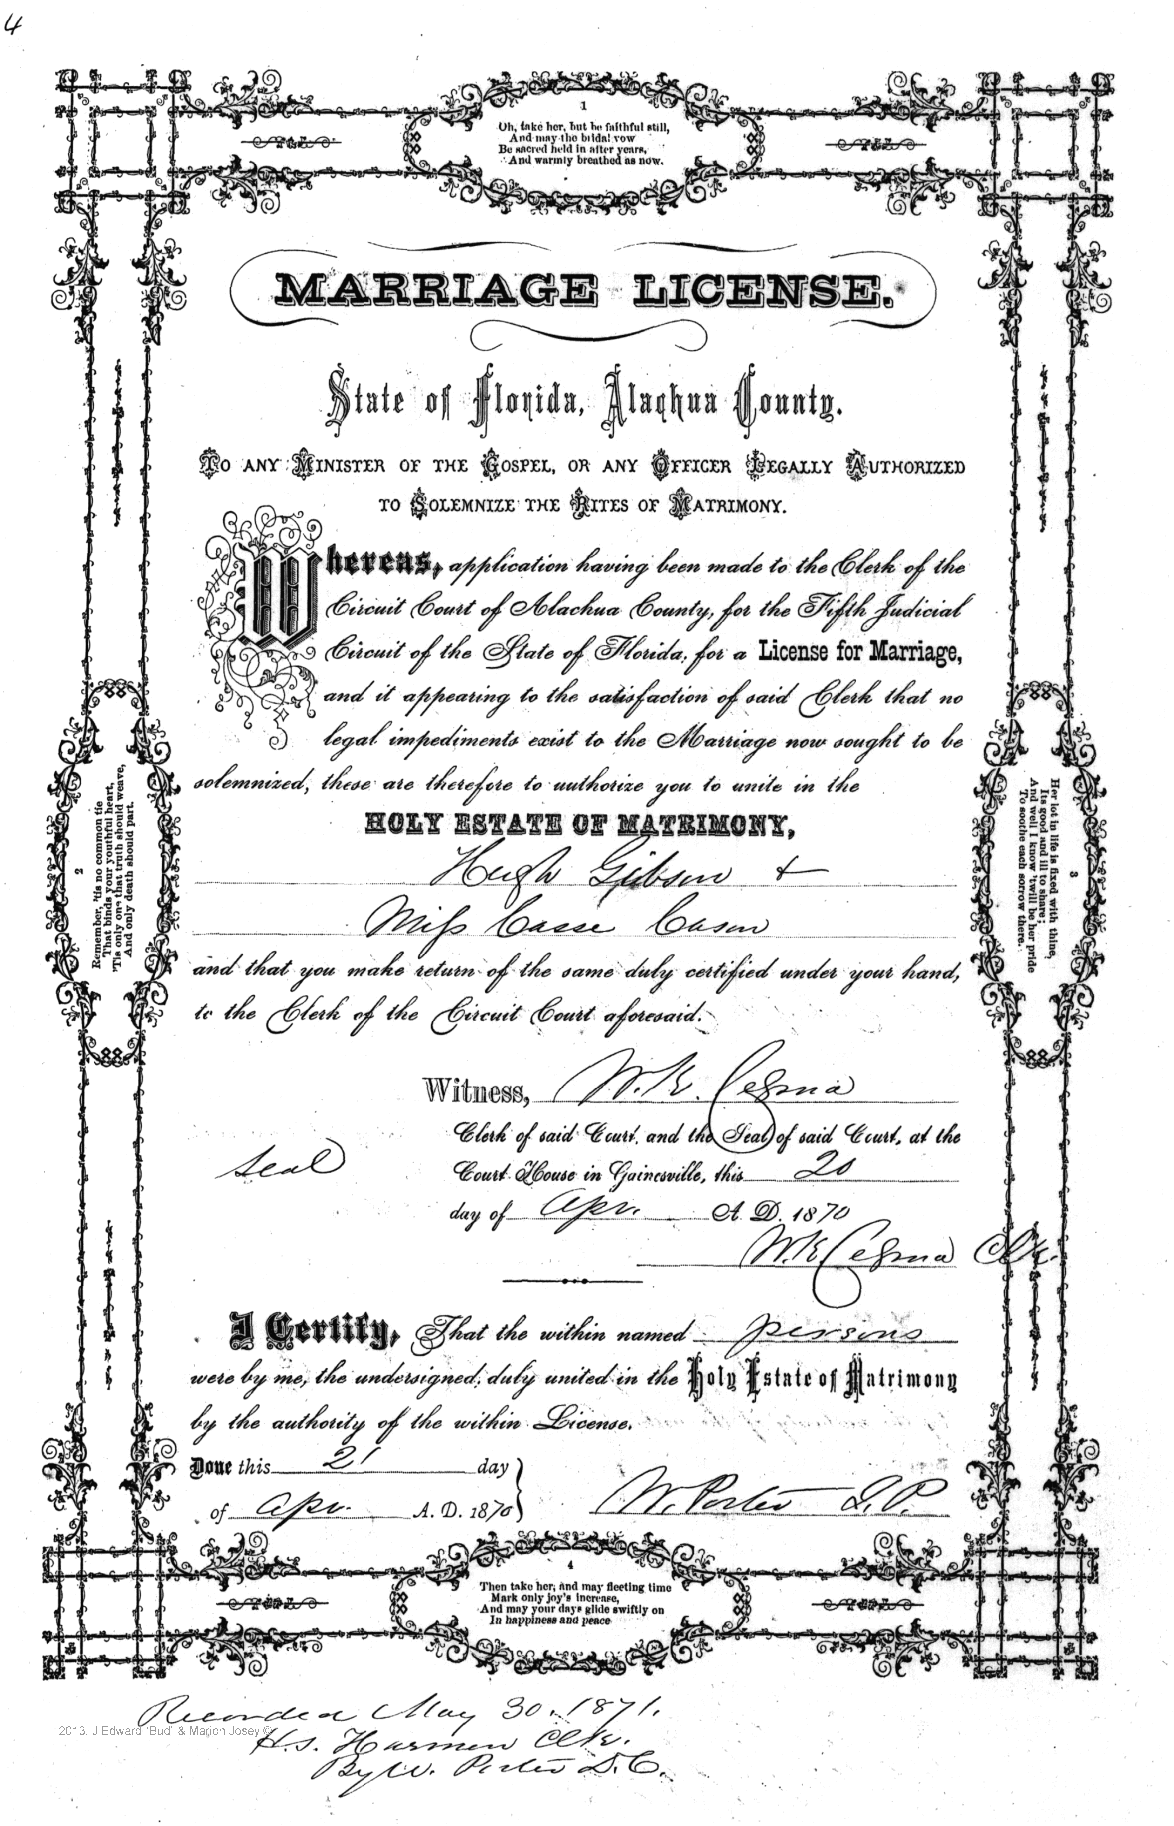 4
1
Oh, take her, but be faithful still,
And may the bridal vow
Be sacred held in after years,
And warmly breathed as now.
MARRIAGE LICENSE.
State of Florida, Alachua County.
TO ANY MINISTER OF THE GOSPEL, OR ANY OFFICER LEGALLY AUTHORIZED
TO SOLEMNIZE THE RITES OF MATRIMONY.
Whereas, application having been made to the Clerk of the
Circuit Court of Alachua County, for the Fifth Judicial
Circuit of the State of Florida, for a License for Marriage,
and it appearing to the satisfaction of said Clerk that no
legal impediments exist to the Marriage now sought to be
solemnized, these are therefore to authorize you to unite in the
HOLY ESTATE OF MATRIMONY,
Hugh Gibson &
Miss Casse Cason
and that you make return of the same duly certified under your hand,
to the Clerk of the Circuit Court aforesaid.
2
Remember, 'tis no common tie
That binds your youthful heart,
'Tis only one that truth should weave,
And only death should part.
3
Her lot in life is fixed with thine,
Its good and ill to share;
And well I know 'twill be her pride
To soothe each sorrow there.
Witness, W. K. Cessna
Clerk of said Court, and the Seal of said Court, at the
seal
Court House in Gainesville, this 20
day of Apr. A. D. 1870
W. K. Cessna Clk.
I Certify, That the within named persons
were by me, the undersigned, duly united in the Holy Estate of Matrimony
by the authority of the within License.
Done this 21 day
of Apr. A. D. 1870
W. Porter J. P.
4
Then take her, and may fleeting time
Mark only joy's increase,
And may your days glide swiftly on
In happiness and peace
Recorded May 30. 1871.
2013. J Edward 'Bud' & Marion Josey ©
H. S. Harmon Clk.
By W. Porter D. C.